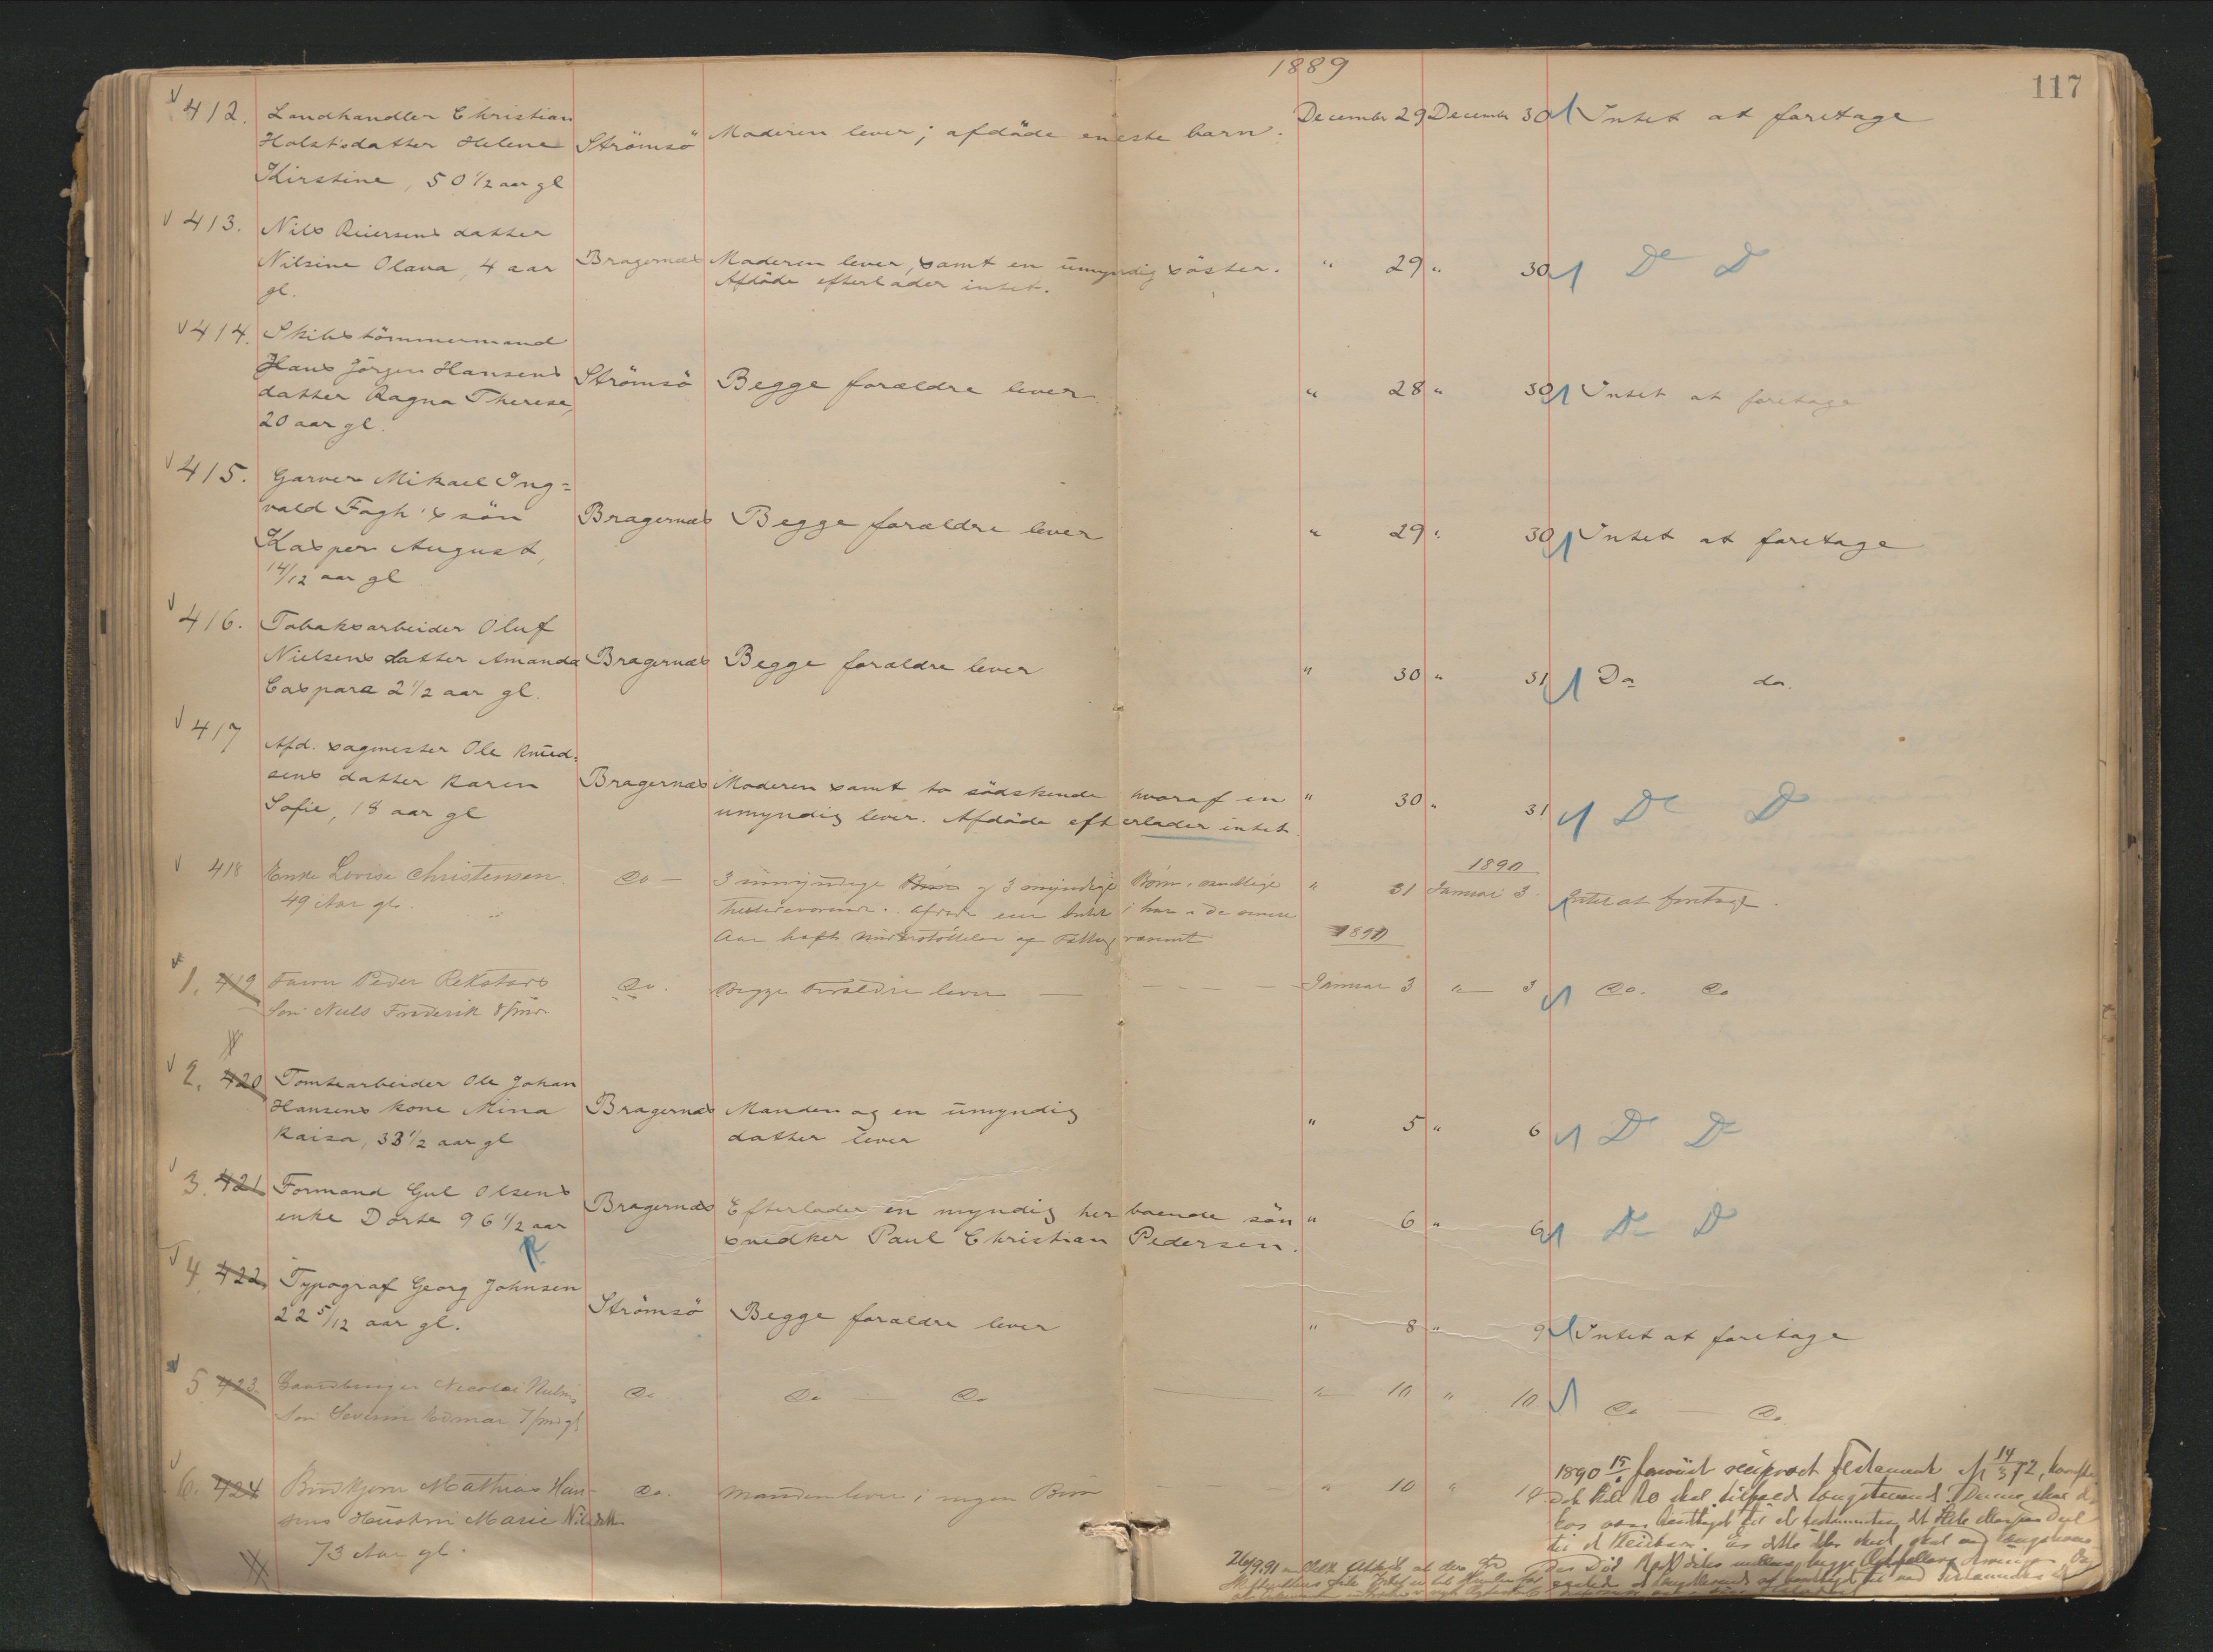 1889
117
412. Landhandler Christian
Holst's datter Helene
Kirstine, 50 1/2 aar gl
Strömsö
Moderen lever; afdöde eneste barn.
December 29 December 30 Intet at foretage
413. Nils Reiersens datter
Nilsine Olava, 4 aar
gl.
Bragernæs
Moderen lever, samt en umyndig söster.
Afdöde efterlader intet.
" 29 " 30 Do Do
414. Skibstömmermand
Hans Jörgen Hansens
datter Ragna Therese,
20 aar gl.
Strömsö
Begge forældre lever
" 28 " 30 Intet at foretage
415. Garver Mikael Ing=
vald Fagh's sön
Kasper August,
14/12 aar gl
Bragernæs
Begge forældre lever
" 29 " 30 Intet at foretage
416. Tobaksarbeider Oluf
Nielsens datter Amanda
Caspara 2 1/2 aar gl.
Bragernæs
Begge forældre lever
" 30 " 31 Do do.
417 Afd. sagmester Ole Knud=
sens datter Karen
Sofie, 18 aar gl
Bragernæs
Moderen samt to södskende hvoraf en
umyndig lever. Afdöde efterlader intet.
" 30 " 31 Do Do
418 Enke Lovise Christensen
49 Aar gl.
Do
3 umyndige og 3 myndige Börn, samtlige
tilstedeværende. Afdøde eier Intet; har i de senere
Aar havt Understöttelse af Fattigvæsenet
1890
" 31 Januar 3. Intet at foretage.
1890
1. 419 Peder
Sön Niels Frederik 8 mdr
Do.
Begge Forældre lever
Januar 3 " 3 Do. Do
2. 420 Tomtearbeider Ole Johan
Hansens kone Mina
Kaisa, 33 1/2 aar gl
Bragernæs
Manden og en umyndig
datter lever
" 5 " 6 Do Do
3. 421 Formand Gul Olsens
enke Dorte 96 1/2 aar
Bragernæs
Efterlader en myndig her boende sön
snedker Paul Christian Pedersen.
" 6 " 6 Do Do
4 422 Typograf Georg Johnsen
22 5/12 aar gl.
Strömsö
Begge forældre lever
" 8 " 9 Intet at foretage
5 423. Nicolai Nielsens
Sön Severin 7 mdr gl
Do
Do Do
" 10 " 10 Do Do.
6. 424 Mathias Han-
sens Hustru Marie Nilsdatter
73 Aar gl.
Do.
Manden lever; ingen Börn
" 10 "
1890 reciproct Testament 14/3 72,
26/9.91